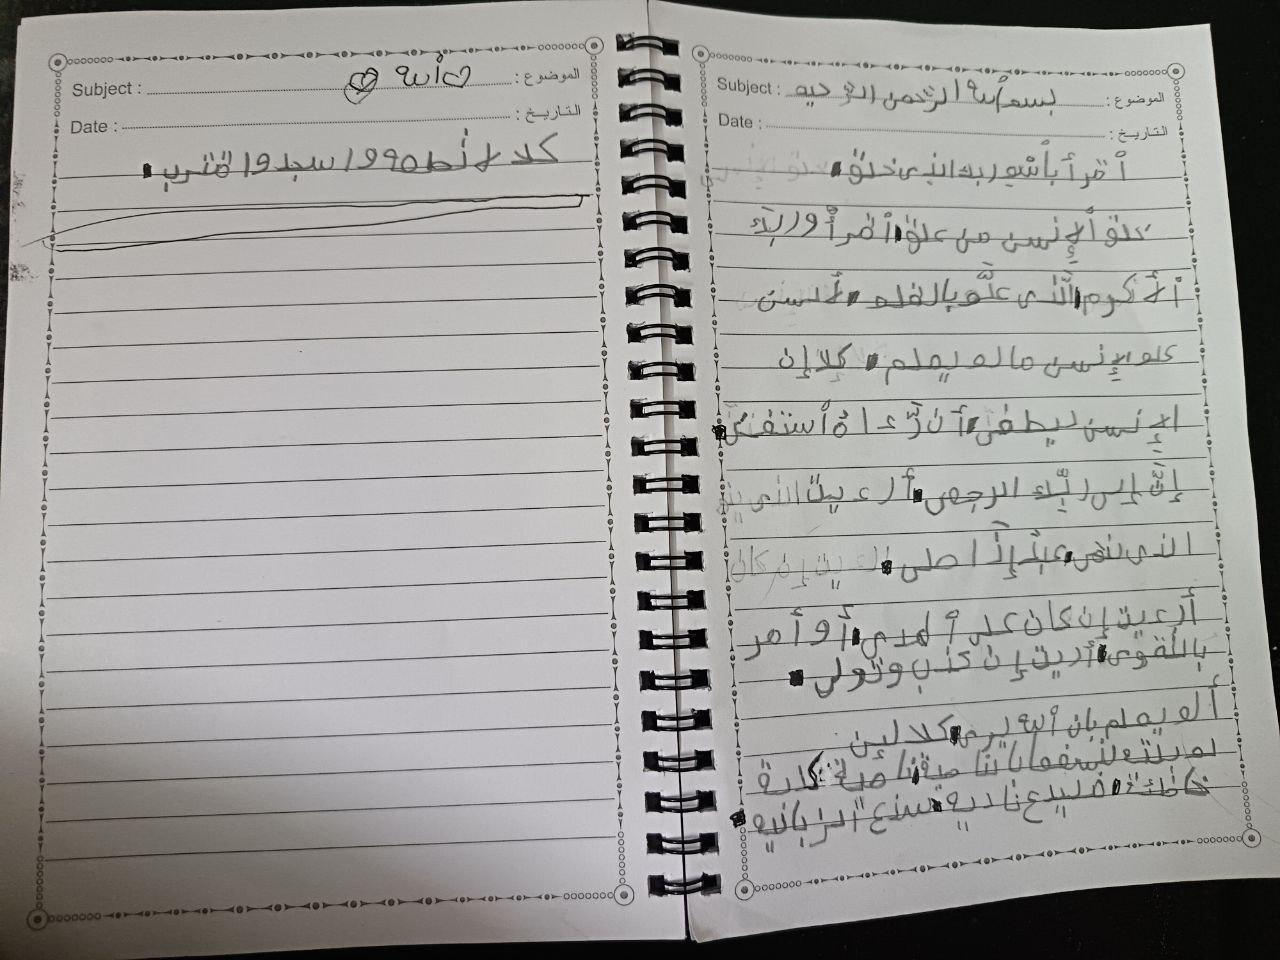 Subject : بسم ألله الرحمن الرحيم الموضوع :
Date : التاريخ :
أقرأ بأسم ربك الذى خلق
خلق ألإنسن من علق أقرأ وربك
ألأكرم ألذى علم بالقلم
علم الإنسن ما لم يعلم كلا إن
الإنسن ليطغى أن رءاه أستغنى
إن إلى ربك الرجعى أرءيت الذى ينهى
الذى ينهى عبدا إذا صلى
أرءيت إن كان على ألهدى أو أمر
بالتقوى أريت إن كذب وتولى
ألم يعلم بان ألله يرى كلا لين
لم ينته لنسفعا بالناصية ناصية كاذبة
خاطئة فليدع ناديه سندع الزبانيه
Subject : ألله الموضوع :
Date : التاريخ :
كلا لا تطعه واسجد واقترب